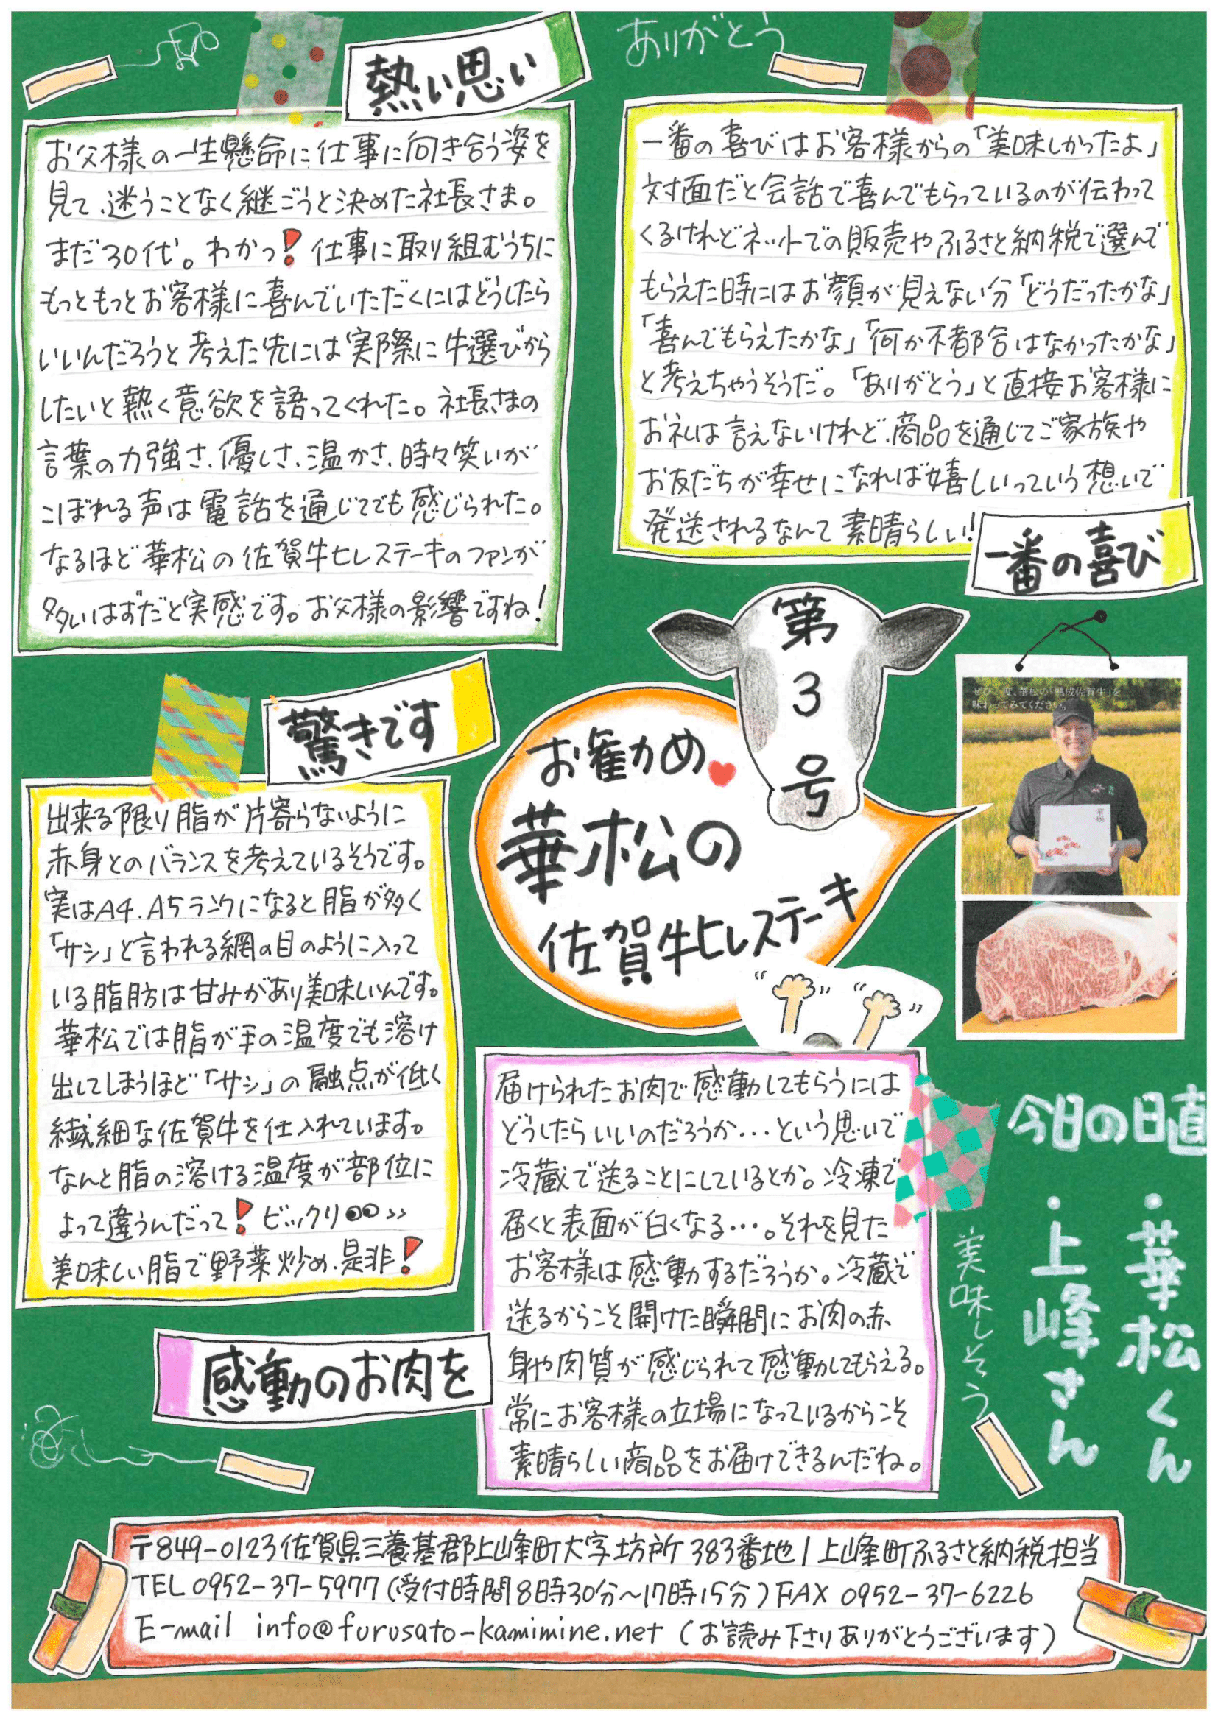 熱い思い
お父様の一生懸命に仕事に向き合う姿を
見て、迷うことなく継ごうと決めた社長さま。
まだ30代。わかっ！仕事に取り組むうちに
もっともっとお客様に喜んでいただくにはどうしたら
いいんだろうと考えた先には実際に牛選びから
したいと熱く意欲を語ってくれた。社長さまの
言葉の力強さ、優しさ、温かさ、時々笑いが
こぼれる声は電話を通じてでも感じられた。
なるほど華松の佐賀牛ヒレステーキのファンが
多いはずだと実感です。お父様の影響ですね！
ありがとう
一番の喜びはお客様からの「美味しかったよ」
対面だと会話で喜んでもらっているのが伝わって
くるけれどネットでの販売やふるさと納税で選んで
もらえた時にはお顔が見えない分「どうだったかな」
「喜んでもらえたかな」「何か不都合はなかったかな」
と考えちゃうそうだ。「ありがとう」と直接お客様に
お礼は言えないけれど、商品を通じてご家族や
お友だちが幸せになれば嬉しいっていう想いで
発送されるなんて素晴らしい！
一番の喜び
第
3
号
お勧め
華松の
佐賀牛ヒレステーキ
ぜひ一度、華松の「熟成佐賀牛」を
味わってみてください。
驚きです
出来る限り脂が片寄らないように
赤身とのバランスを考えているそうです。
実はA4、A5ランクになると脂が多く
「サシ」と言われる網の目のように入って
いる脂肪は甘みがあり美味しいんです。
華松では脂が手の温度でも溶け
出してしまうほど「サシ」の融点が低く
繊細な佐賀牛を仕入れています。
なんと脂の溶ける温度が部位に
よって違うんだって！ビックリ
美味しい脂で野菜炒め、是非！
感動のお肉を
届けられたお肉で感動してもらうには
どうしたらいいのだろうか・・・という思いで
冷蔵で送ることにしているとか。冷凍で
届くと表面が白くなる・・・。それを見た
お客様は感動するだろうか。冷蔵で
送るからこそ開けた瞬間にお肉の赤
身や肉質が感じられて感動してもらえる。
常にお客様の立場になっているからこそ
素晴らしい商品をお届けできるんだね。
今日の日直
・華松くん
・上峰さん
美味しそう
〒849-0123佐賀県三養基郡上峰町大字坊所383番地1上峰町ふるさと納税担当
TEL 0952-37-5977(受付時間8時30分～17時15分)FAX 0952-37-6226
E-mail info@furusato-kamimine.net (お読み下さりありがとうございます)